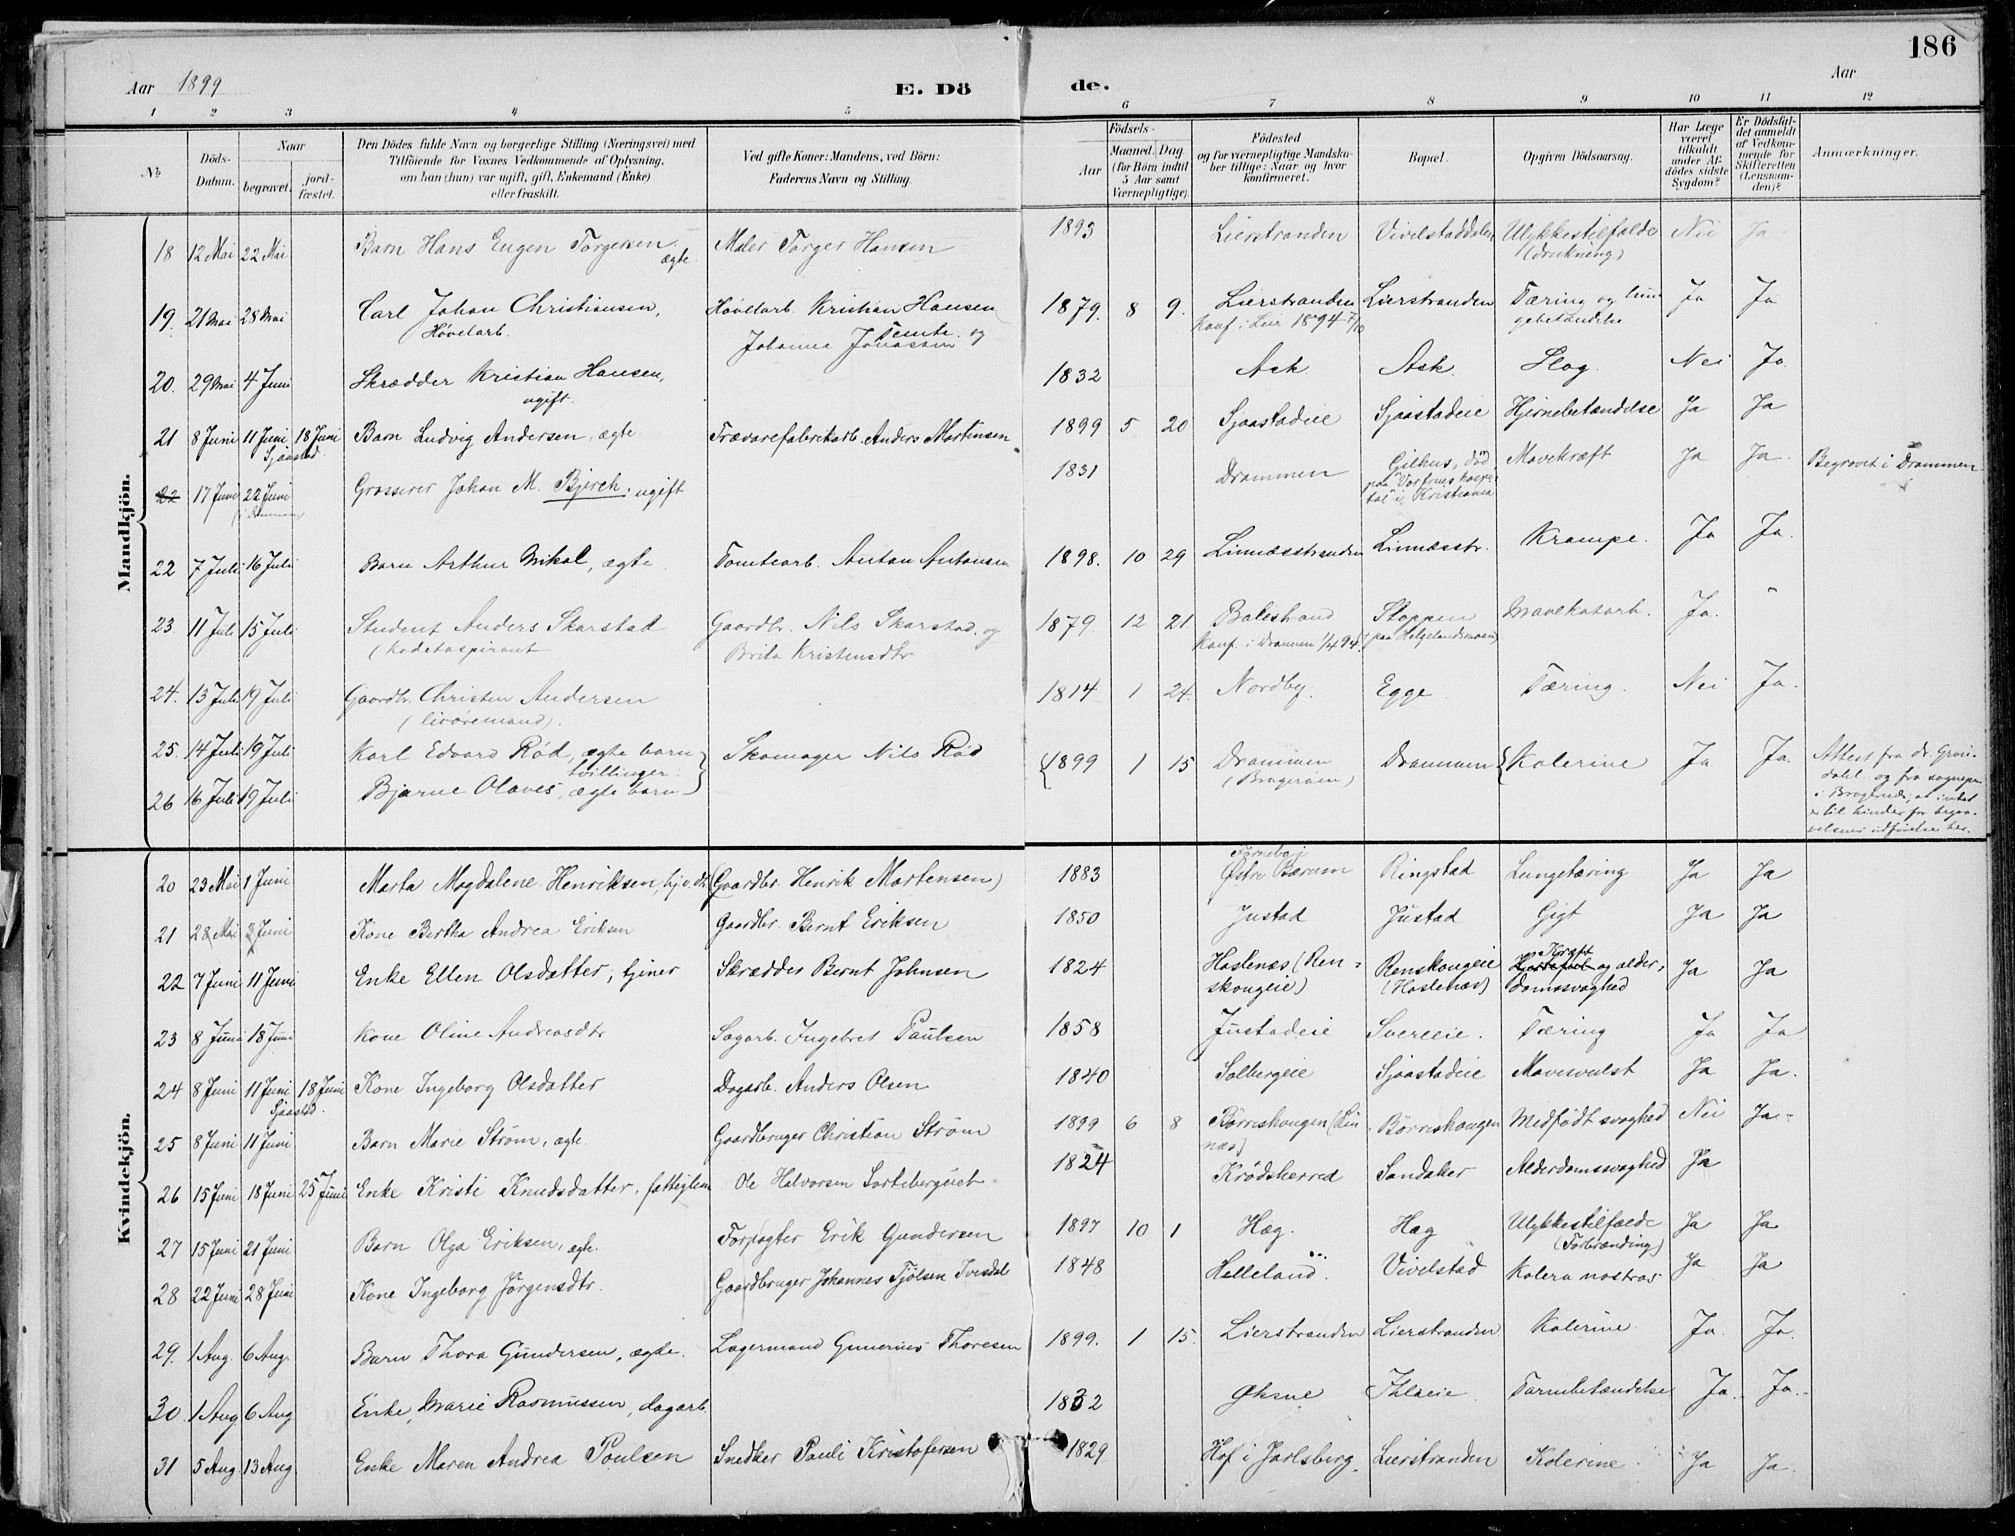 186
Aar 1899
E. Dö
de.
Aar
1 2 3 4 5 6 7 8 9 10 11 12
No
Döds-Datum.
Naar
begravet.
jordfæstet.
Den Dödes fulde Navn og borgerlige Stilling (Næringsvei) med
Tilföiende for Voxnes Vedkommende af Oplysning,
om han (hun) var ugift, gift, Enkemand (Enke)
eller fraskilt.
Ved gifte Koner: Mandens, ved Börn:
Faderens Navn og Stilling.
Födsels-
Aar
Maaned. Dag.
(for Börn indtil
5 Aar samt
Værnepligtige).
Födested
og for værnepligtige Mandska-
ber tillige: Naar og hvor
konfirmeret.
Bopæl.
Opgiven Dödsaarsag.
Har Læge
været
tilkaldt
under Af-
dödes sidste
Sygdom?
Er Dödsfal-
det anmeldt
af Vedkom-
mende for
Skifteretten
(Lensman-
den)?
Anmærkninger.
Mandkjön.
18 12 Mai 22 Mai Barn Hans Eugen Torgersen, ægte. Maler Torger Hansen 1893 Lierstranden Vivelstaddalen Ulykkestilfælde (drukning) Nei Ja
19. 21 Mai 28 Mai Carl Johan Christiansen, Høvelarb. Høvelarb. Kristian Hansen Tømte og Johanne Jonassen 1879. 8 9. Lierstranden Konf. i Lier 1894 7/10 Lierstranden Tæring og lungebetændelse Ja Ja
20. 29 Mai 4 Juni Skrædder Kristian Hansen, ugift. 1832 Ask Ask. Slag. Nei Ja.
21 8 Juni 11 Juni Sjaastad 18 Juni Barn Ludvig Andersen, ægte Trævarefabrikarb. Anders Martinsen 1899 5 20 Sjaastadeie Sjaastadeie Hjernebetændelse Ja Ja
22 17 Juni 22 Juni (i Drammen) Grosserer Johan M. Bjerch, ugift 1831 Drammen Gilhus, død paa "Vor frues hospital" i Kristiania Mavekræft Ja Ja. Begravet i Drammen
22 7 Juli 16 Juli Barn Arthur Mikal, ægte Tomtearb. Anton Antonsen 1898. 10 29 Linnæsstranden Linnæsstr. Krampe. Ja Ja.
23. 11 Juli 15 Juli Student Anders Skarstad (kadetaspirant Gaardbr. Nils Skarstad og Brita Kristensdtr 1879. 12 21 Balestrand Konf. i Drammen 1/4 94. Stoppen (paa Helgelandsmoen) Mavekatarh. Ja. "
24. 13 Juli 19 Juli Gaardbr. Christen Andersen (livøremand). 1814 1 24. Nordby. Egge Tæring. Nei Ja.
25. 14 Juli 19 Juli Karl Edvard Rød, ægte barn tvillinger. Skomager Nils Rød 1899 1 15 Drammen (Bragerøen) Drammen Kolerine Ja Ja Attest fra dr. Grøndahl og fra sogneprr. i Bragernæs, at intet er til hinder for begravelsens udførelse her.
26 16 Juli 19 Juli Bjarne Olaves, ægte barn
Kvindekjön.
20 23 Mai 1 Juni Marta Magdalene Henriksen, hj.v.dt. (Gaardbr. Henrik Mortensen) 1883 Fornebo i Østre Bærum Ringstad Lungetæring Ja Ja
21 28 Mai 3 Juni Kone Bertha Andrea Eriksen Gaardbr. Bernt Eriksen 1850 Justad Justad Gigt Ja Ja
22 7 Juni 11 Juni Enke Ellen Olsdatter, tjener Skrædder Bernt Johnsen 1824 Haslenæs (Renskougeie) Renskougeie (Haslenæs) Kræft og alderdomssvaghed Ja Ja
23 8 Juni 18 Juni Kone Oline Andreasdtr Sagarb. Ingebret Paulsen 1858 Justadeie Svereeie. Tæring Ja Ja
24 8 Juni 11 Juni Sjaastad. 18 Juni Kone Ingeborg Olsdatter Dagarb. Anders Olsen 1840 Solbergeie Sjaastadeie Mavesvulst Ja Ja.
25 8 Juni 11 Juni Barn Marie Strøm, ægte. Gaardbruger Christian Strøm 1899 6 8 Børreskougen (Linnæs) Børreskougen Medfødt svaghed Nei Ja
26 15 Juni 18 Juni 25 Juni Enke Kristi Knudsdatter, fattiglem Ole Halvorsen Sorteberguiet 1824 Krødsherred Sandaker Alderdomssvaghed Ja
27 15 Juni 21 Juni Barn Olga Eriksen, ægte. Forpagter Erik Gundersen 1897 10 1 Hæg. Hæg Ulykkestilfælde (Forbrænding) Ja Ja
28 22 Juni 28 Juni Kone Ingeborg Jørgensdtr. Gaardbruger Johannes Tjølsen Ivesdal 1848 Helleland. Vivelstad Kolera nostras Ja Ja
29. 1 Aug. 6 Aug. Barn Thora Gundersen, ægte. Lagermand Gunerius Thoresen 1899. 1 15. Lierstranden Lierstranden Kolerine Ja. Ja.
30. 1 Aug 6 Aug Enke, Marie Rasmussen, dagarb. 1832 Øksne Ihleeie Tarmbetændelse Ja. Ja.
31 5 Aug. 13 Aug Enke Maren Andrea Poulsen Snedker Pauli Kristofersen 1829 Hof i Jarlsberg. Lierstranden Kolerine Ja Ja.